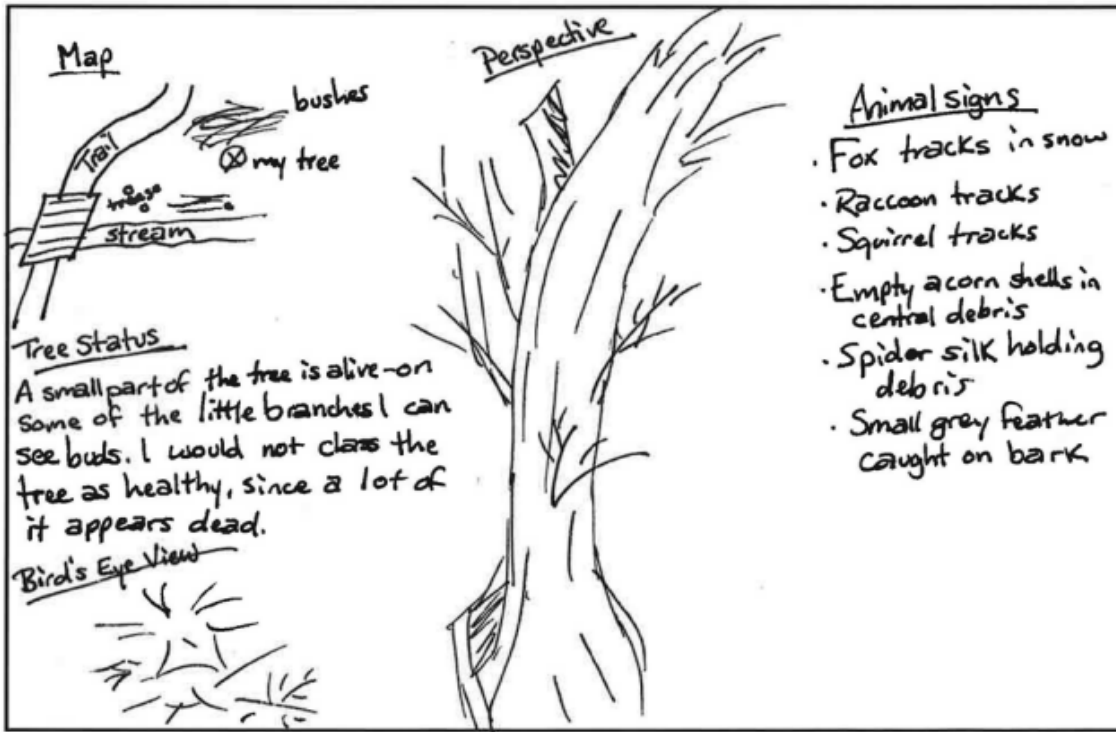 Map
bushes
Trail
my tree
trees
stream
Tree Status
A small part of the tree is alive-on
some of the little branches I can
see buds. I would not class the
tree as healthy, since a lot of
it appears dead.
Bird's Eye View
Perspective
Animal signs
· Fox tracks in snow
· Raccoon tracks
· Squirrel tracks
· Empty acorn shells in
central debris
· Spider silk holding
debris
· Small grey feather
caught on bark